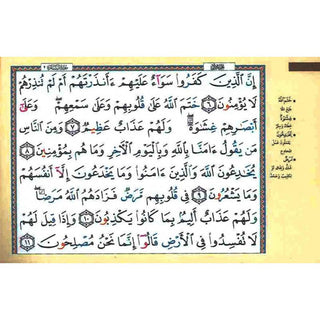 إِنَّ ٱلَّذِينَ كَفَرُوا۟ سَوَآءٌ عَلَيْهِمْ ءَأَنذَرْتَهُمْ أَمْ لَمْ تُنذِرْهُمْ
لَا يُؤْمِنُونَ ٦ خَتَمَ ٱللَّهُ عَلَىٰ قُلُوبِهِمْ وَعَلَىٰ سَمْعِهِمْ ۖ وَعَلَىٰٓ
أَبْصَٰرِهِمْ غِشَٰوَةٌ ۖ وَلَهُمْ عَذَابٌ عَظِيمٌ ٧ وَمِنَ ٱلنَّاسِ
مَن يَقُولُ ءَامَنَّا بِٱللَّهِ وَبِٱلْيَوْمِ ٱلْءَاخِرِ وَمَا هُم بِمُؤْمِنِينَ ٨
يُخَٰدِعُونَ ٱللَّهَ وَٱلَّذِينَ ءَامَنُوا۟ وَمَا يَخْدَعُونَ إِلَّآ أَنفُسَهُمْ
وَمَا يَشْعُرُونَ ٩ فِى قُلُوبِهِم مَّرَضٌ فَزَادَهُمُ ٱللَّهُ مَرَضًا ۖ
وَلَهُمْ عَذَابٌ أَلِيمٌۢ بِمَا كَانُوا۟ يَكْذِبُونَ ١٠ وَإِذَا قِيلَ لَهُمْ
لَا تُفْسِدُوا۟ فِى ٱلْأَرْضِ قَالُوٓا۟ إِنَّمَا نَحْنُ مُصْلِحُونَ ١١